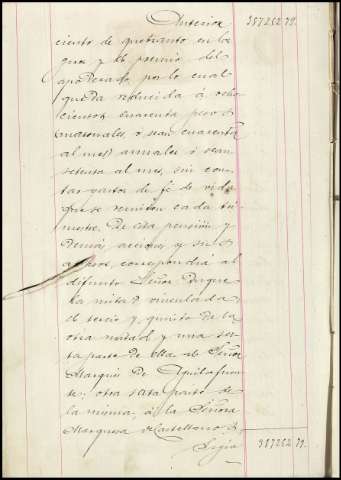 Anterior 387262.79.
ciento de quebranto en la
giros y el premio del
apoderado, por lo cual
queda reducida á ocho
cientos cuarenta pesos
nacionales, ó sean cuarenta
al mes, anuales ó sean
setenta al mes, sin con
tar gastos de fé de vida
que se remiten cada tri
mestre. De esa pensión y
demás acciones y su
correspondía al
difunto Señor Duque
la mitad vinculada,
el tercio y quinto de la
otra mitad y una sex
ta parte de ella al Señor
Marqués de Aguilafuen
te, otra sexta parte de
la misma, á la Señora
Marquesa de Castellanos
Sigue 387262.79.